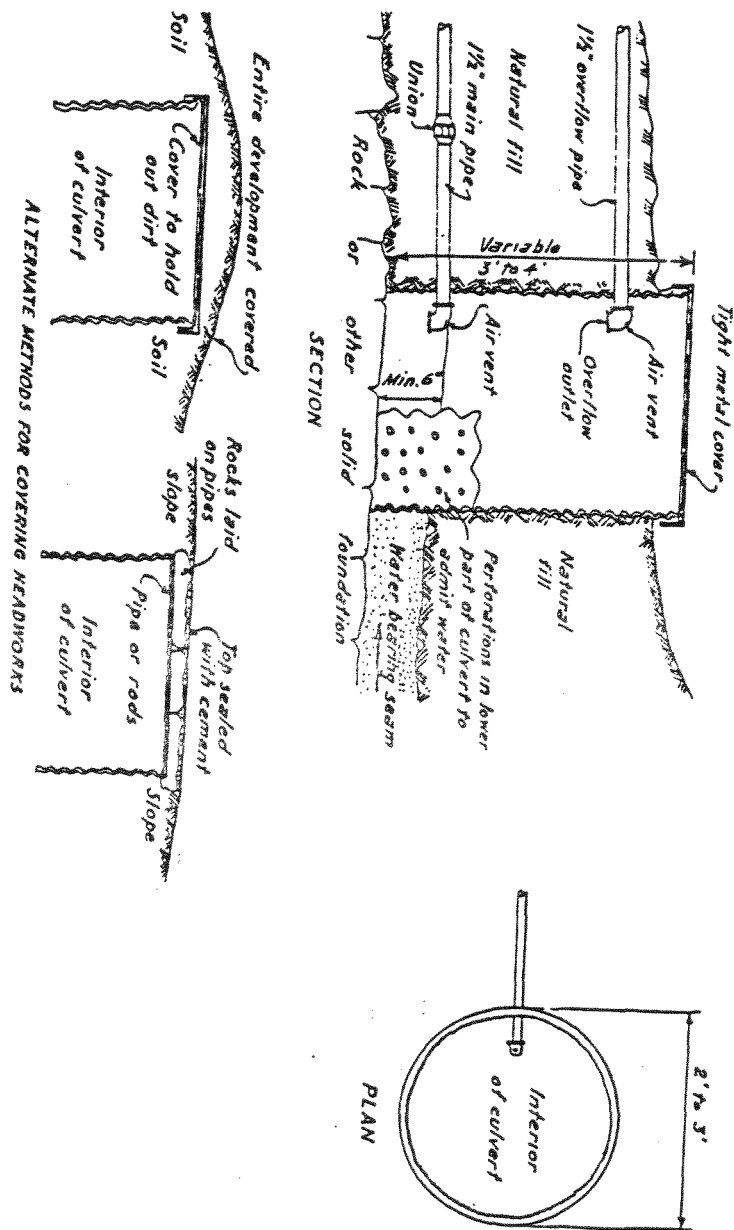 Tight metal cover
1½" overflow pipe
Air vent
Overflow
outlet
Natural
fill
Natural fill
Variable
3' to 4'
1½" main pipe
Union
Air vent
Min. 6"
Perforations in lower
part of culvert to
admit water
Water bearing seam
Rock or other solid foundation
SECTION
2' to 3'
Interior
of culvert
PLAN
Entire development covered
Soil
Cover to hold
out dirt
Soil
Interior
of culvert
Rocks laid
on pipes
slope
Top sealed
with cement
Slope
Pipe or rods
Interior
of culvert
ALTERNATE METHODS FOR COVERING HEADWORKS